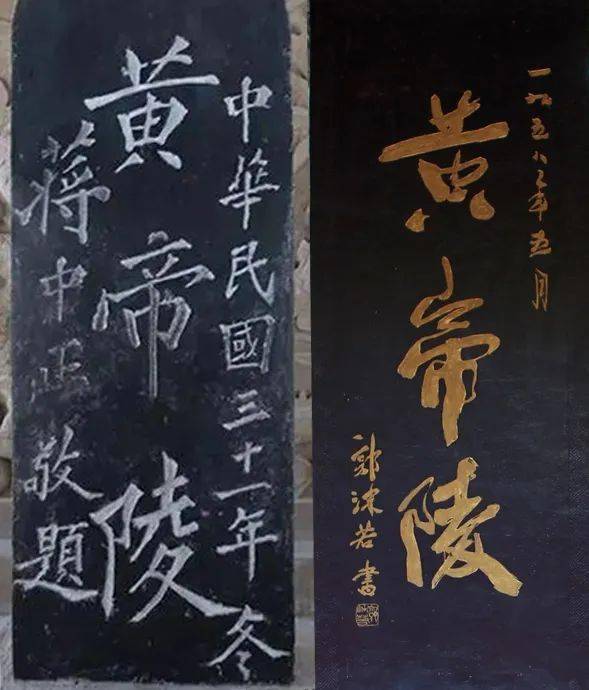 中華民國三十一年冬
黄帝陵
蔣中正敬題
一九五八年五月
黄帝陵
郭沫若書